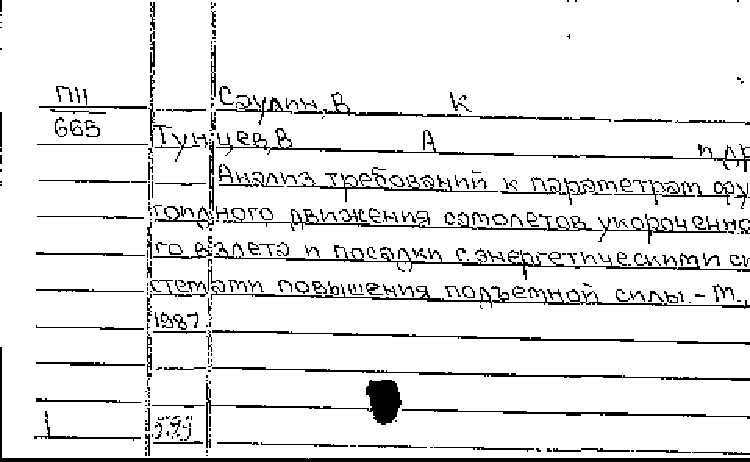 П11 Саулин, В К
665 Тунцев, В А и др
Анализ требований к параметрам фу
гоидного движения самолетов укороченно
го взлета и посадки с энергетическими си
стемами повышения подъемной силы. - М.,
1987